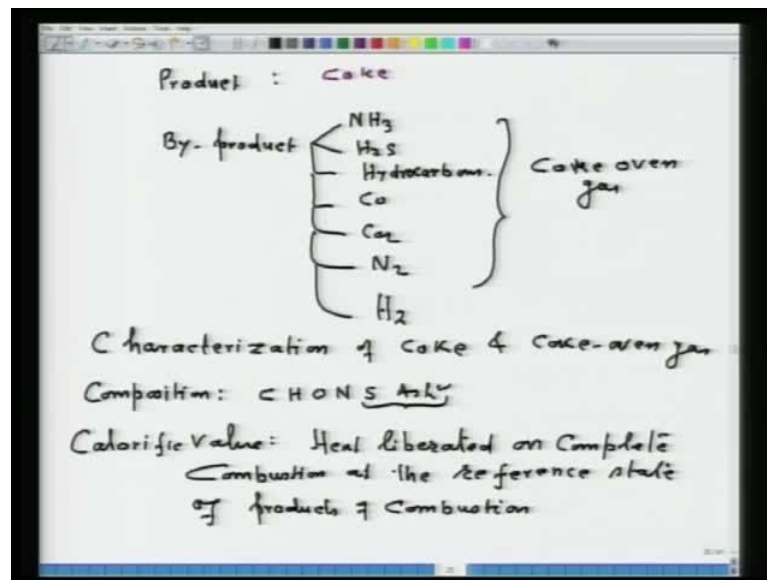 Product : Coke
NH3
By-product H2S
Hydrocarbon.
Co
Co2
N2
H2
Coke oven
gas
Characterization of Coke & Coke-oven gas
Composition: C H O N S Ash
Calorific Value: Heat liberated on Complete
Combustion at the reference state
of products of Combustion